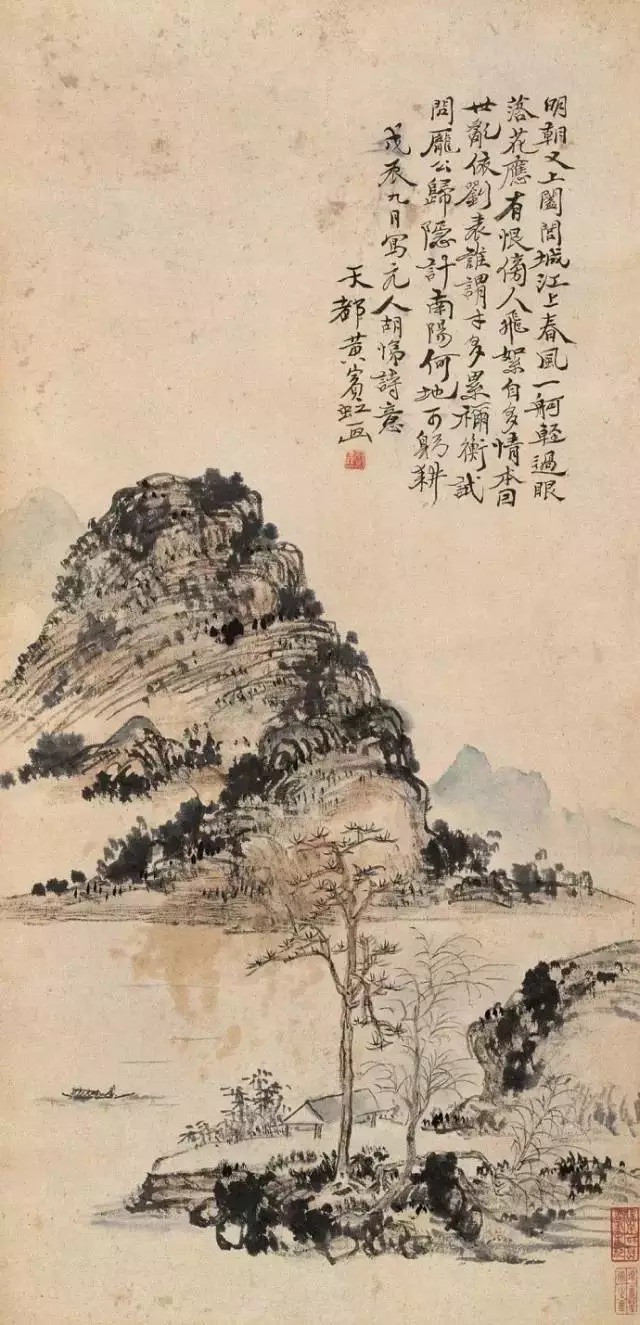 明朝又上闔閭城江上春風一舸輕過眼
落花應有恨傍人飛絮自多情本因
世亂依劉表誰謂才多累禰衡試
問龐公歸隱計南陽何地可躬耕
戊辰九月寫元人胡悌詩意
天都黃賓虹畫